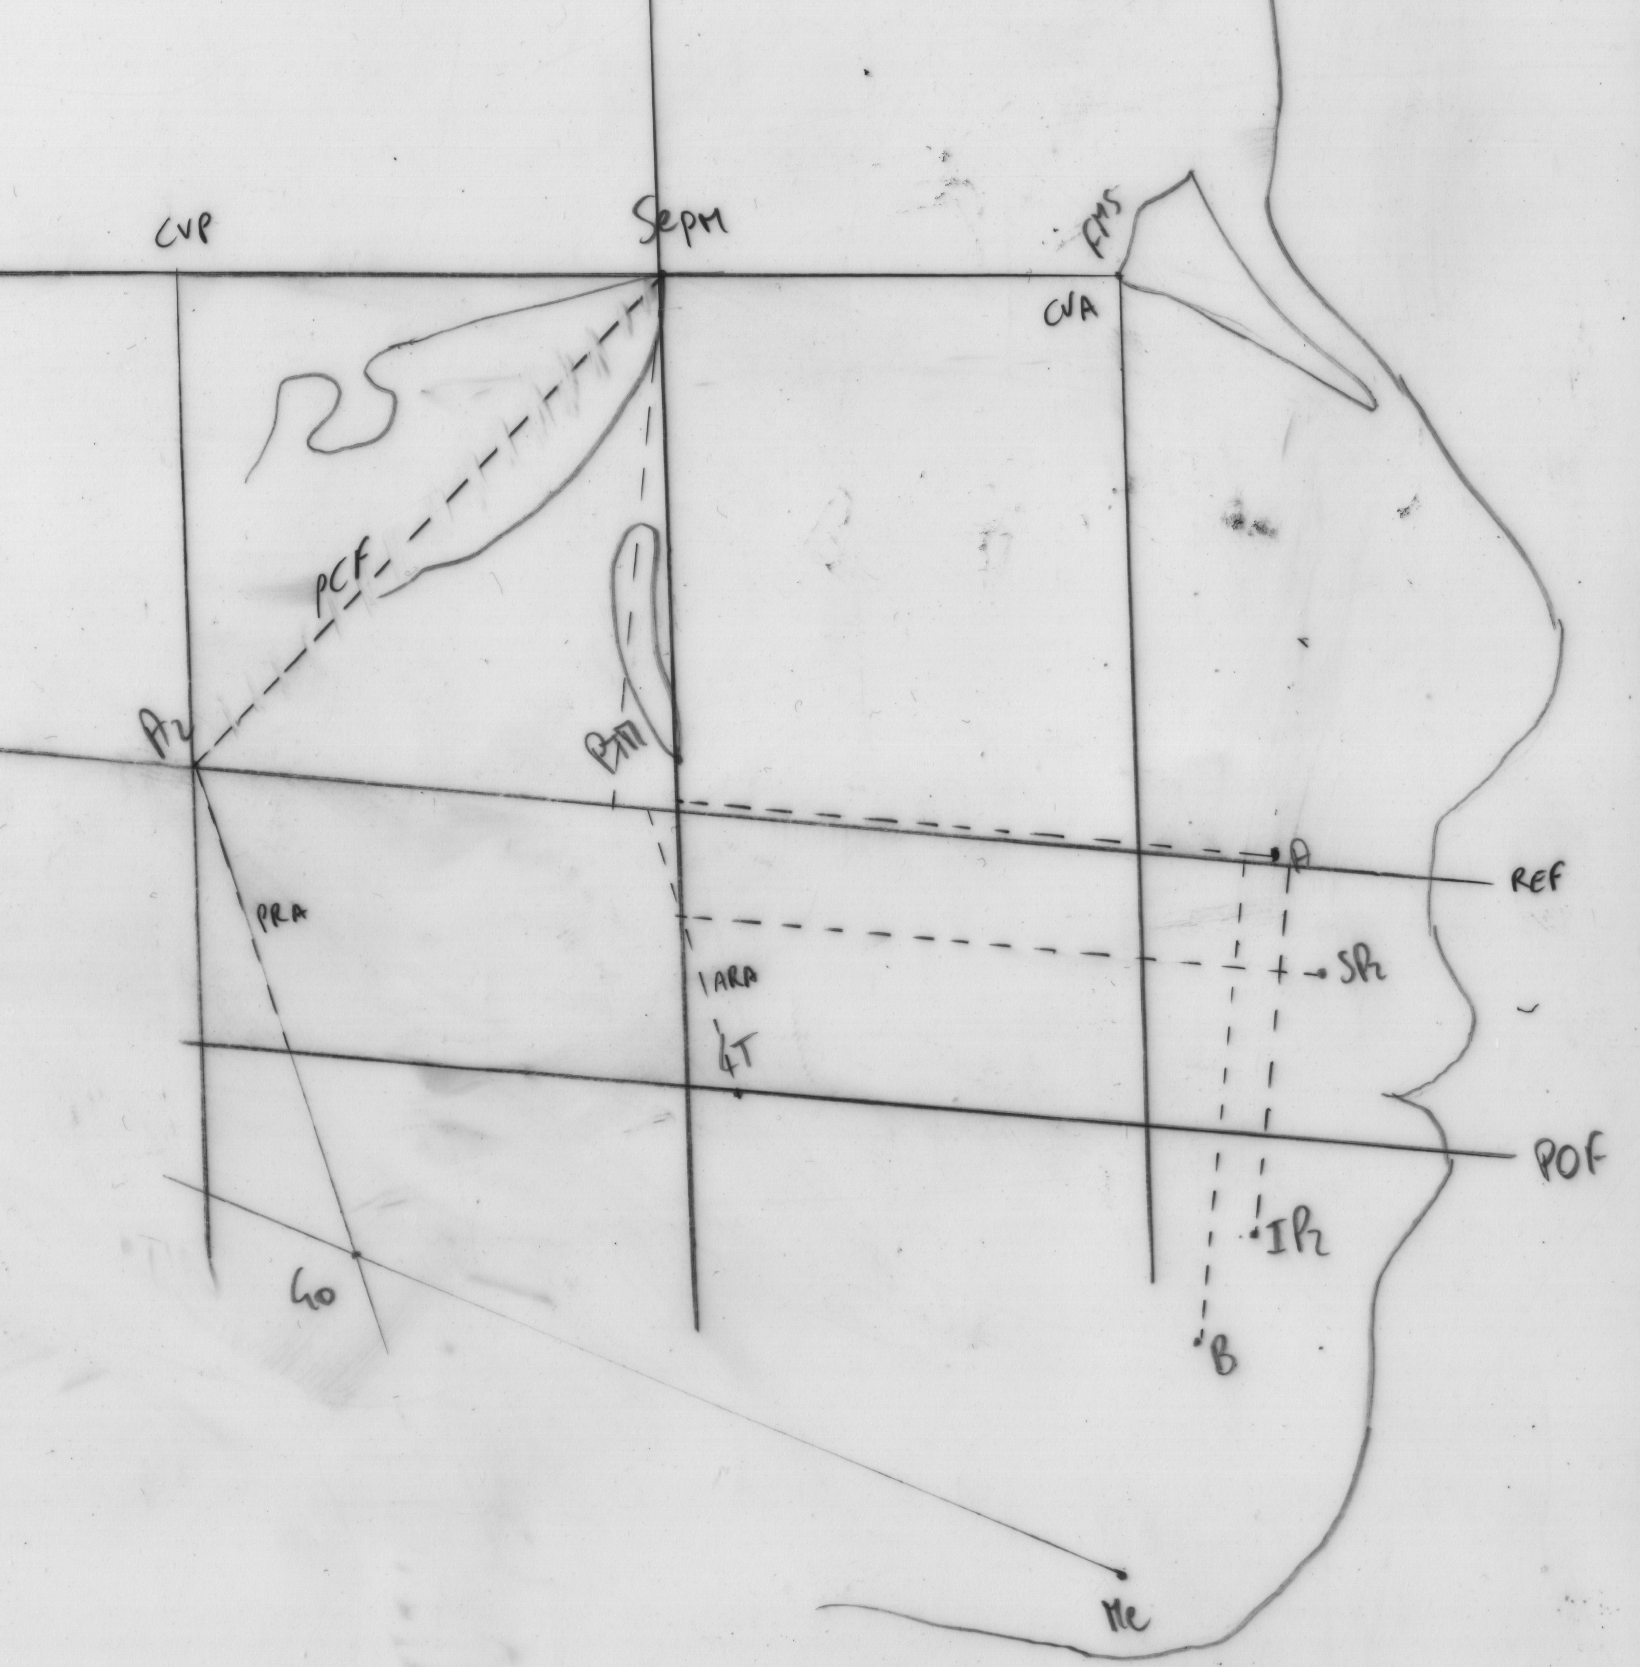 CVP
SepM
FMS
CVA
PCF
Ar
BM
A
REF
PRA
SPr
ARA
4T
POF
IPr
Go
B
Me